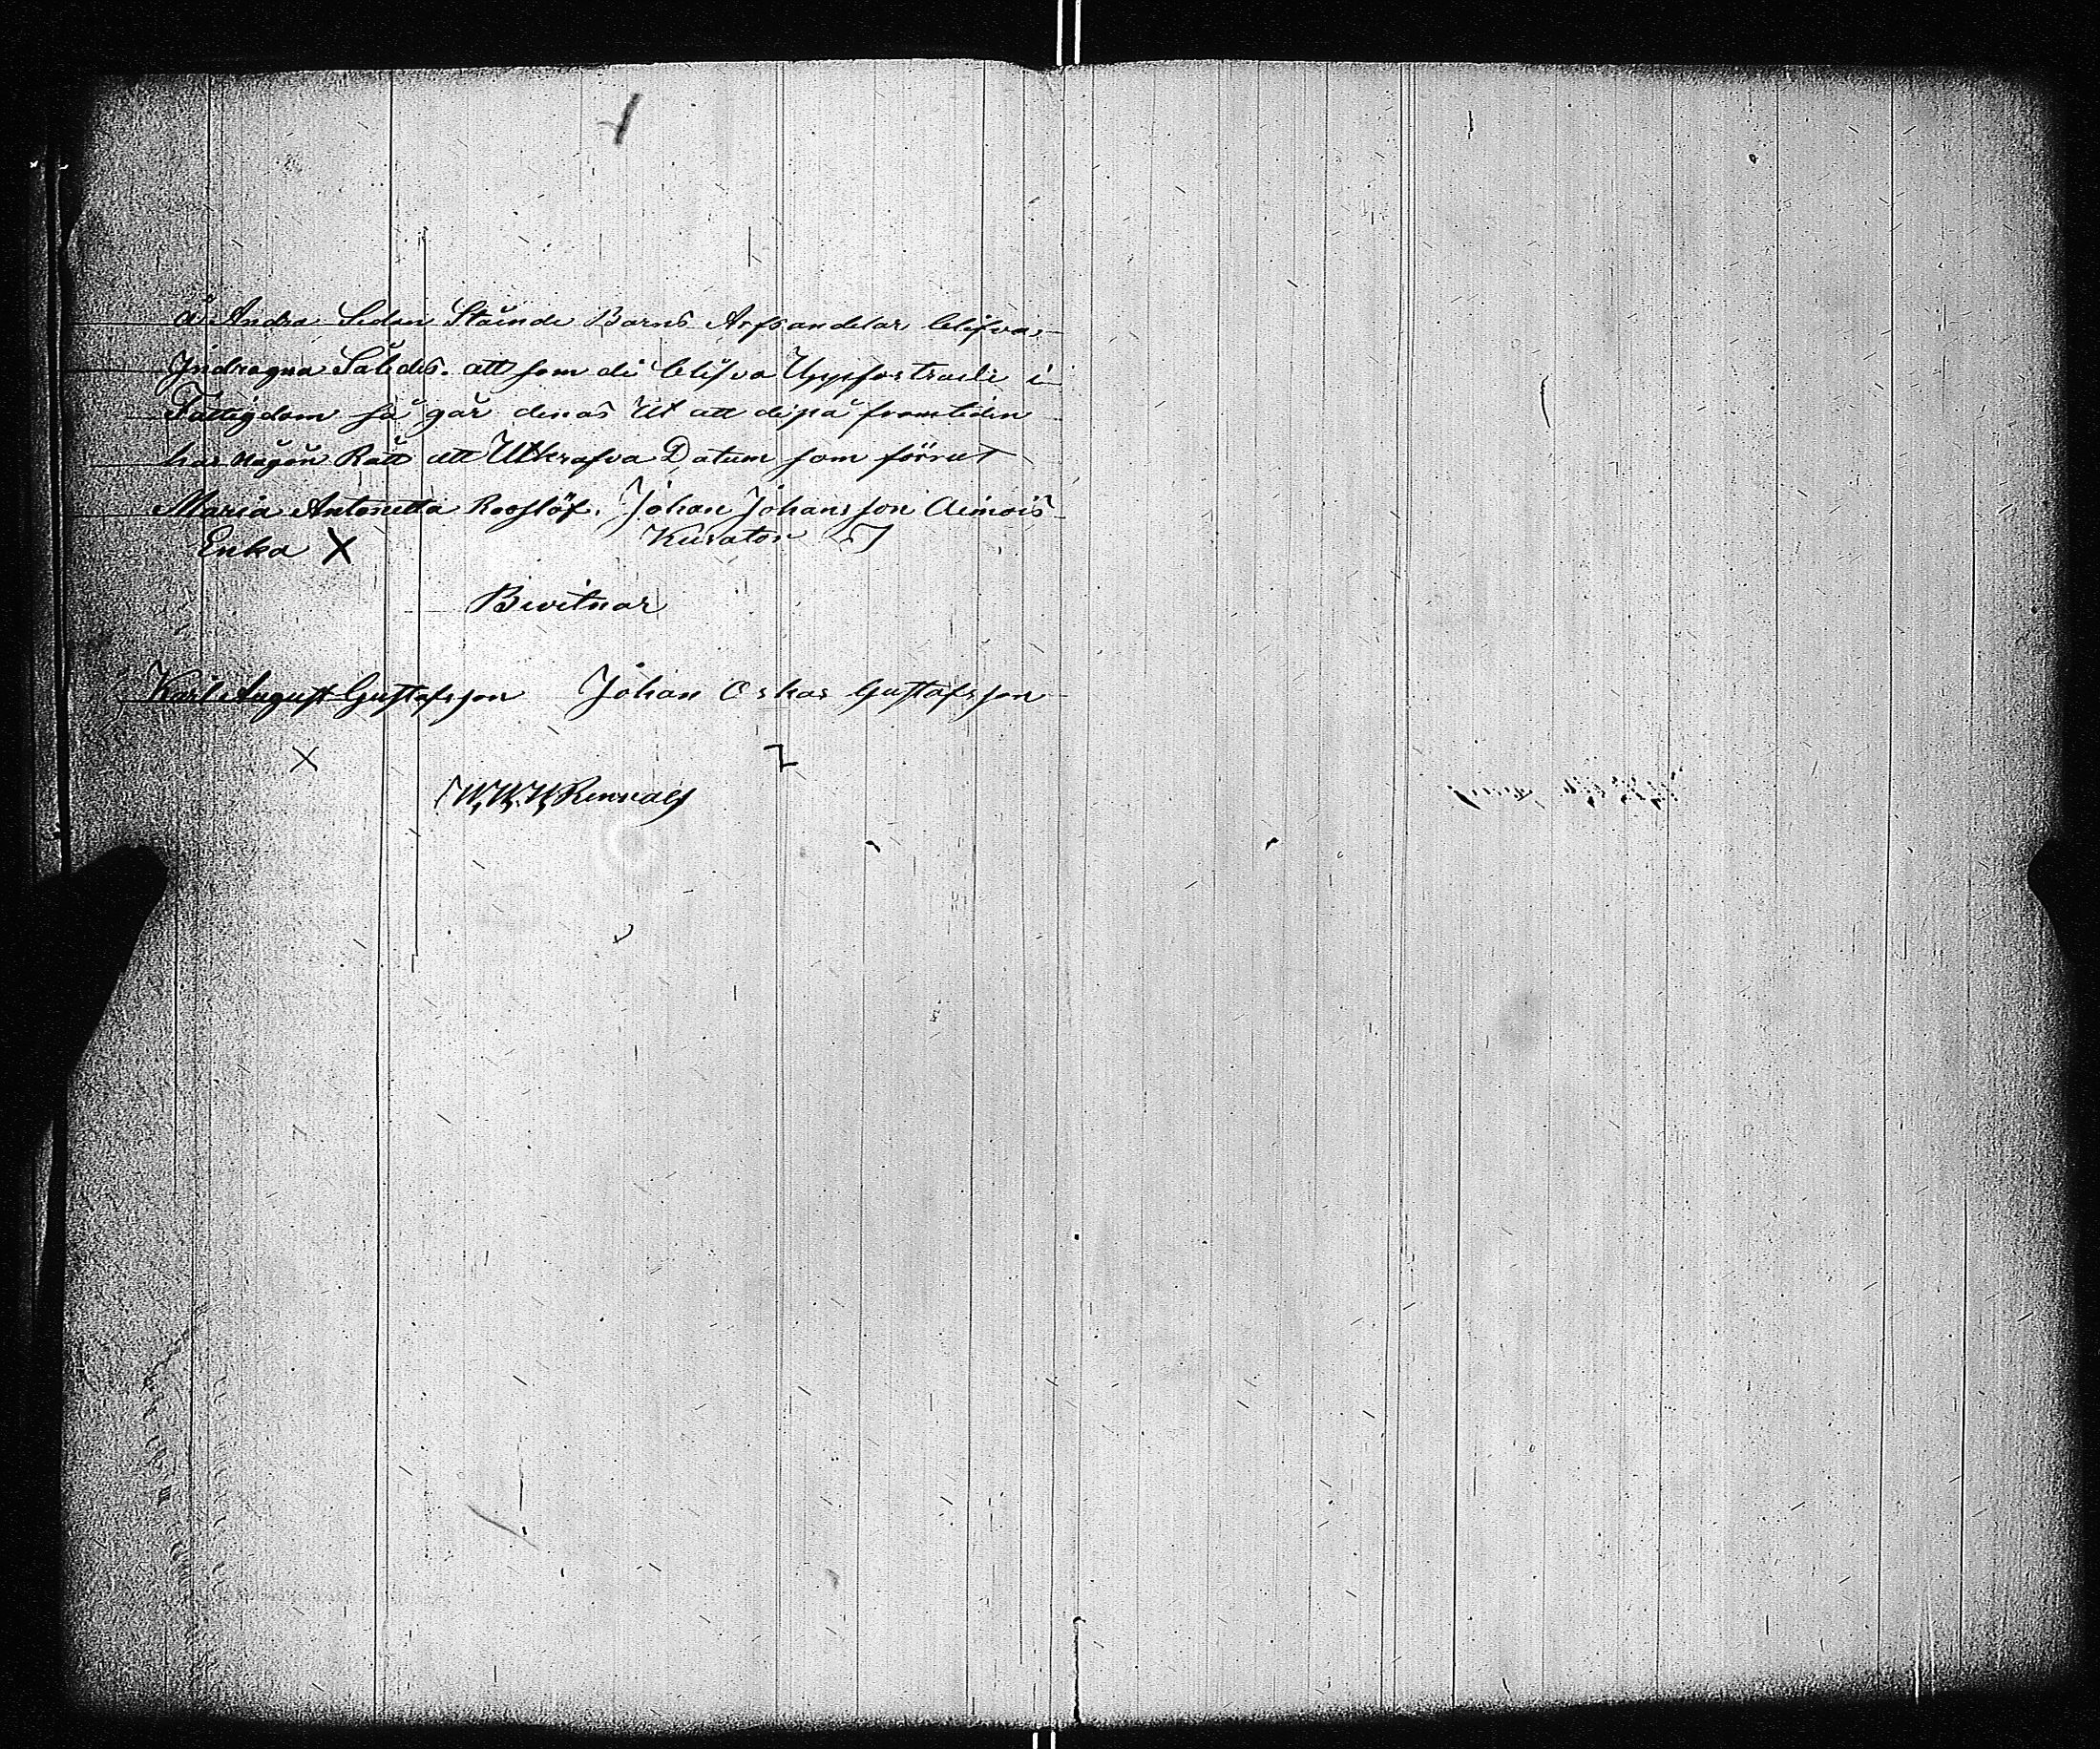 å Andra Sidan Stående Barns Arfsandelar blifvas
Indragna Således. att som de blifva Uppfostrade i
Fattigdom så går deras Ut att de på framtiden
har någon Rätt att Utkrafva Datum som förrut
Maria Antonetta Rooslöf. Johan Johansson Aimois
Enka X Kurator
Bivitnar
Karl August Gustafsson Johan Oskar Gustafsson
X
W. W. W. Rennalf